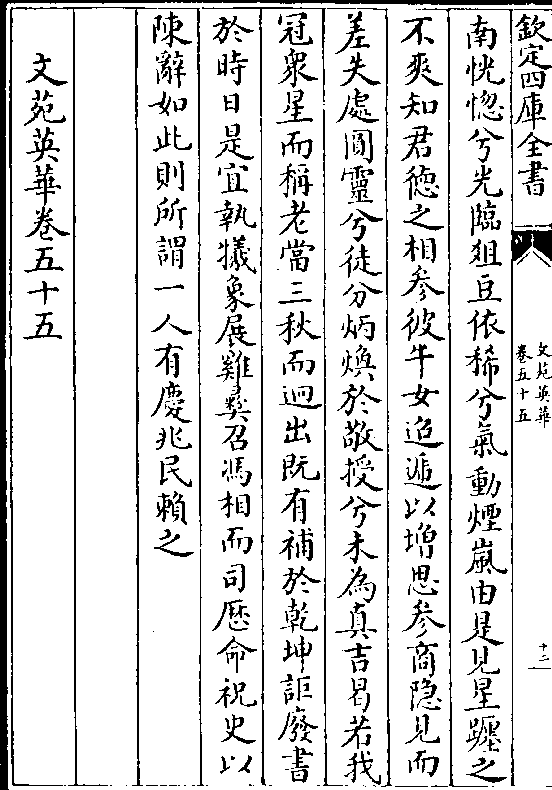 欽定四庫全書
文苑英華
卷五十五
十二
南恍惚兮光臨俎豆依稀兮氣動煙嵐由是見星躔之
不爽知君德之相參彼牛女迢遞以增思參商隱見而
差失處圓靈兮徒分炳煥於敬授兮未為真吉曷若我
冠衆星而稱老當三秋而迥出既有補於乾坤詎廢書
於時日是宜執犧象展雞彝召馮相而司歴命祝史以
陳辭如此則所謂一人有慶兆民賴之
文苑英華卷五十五